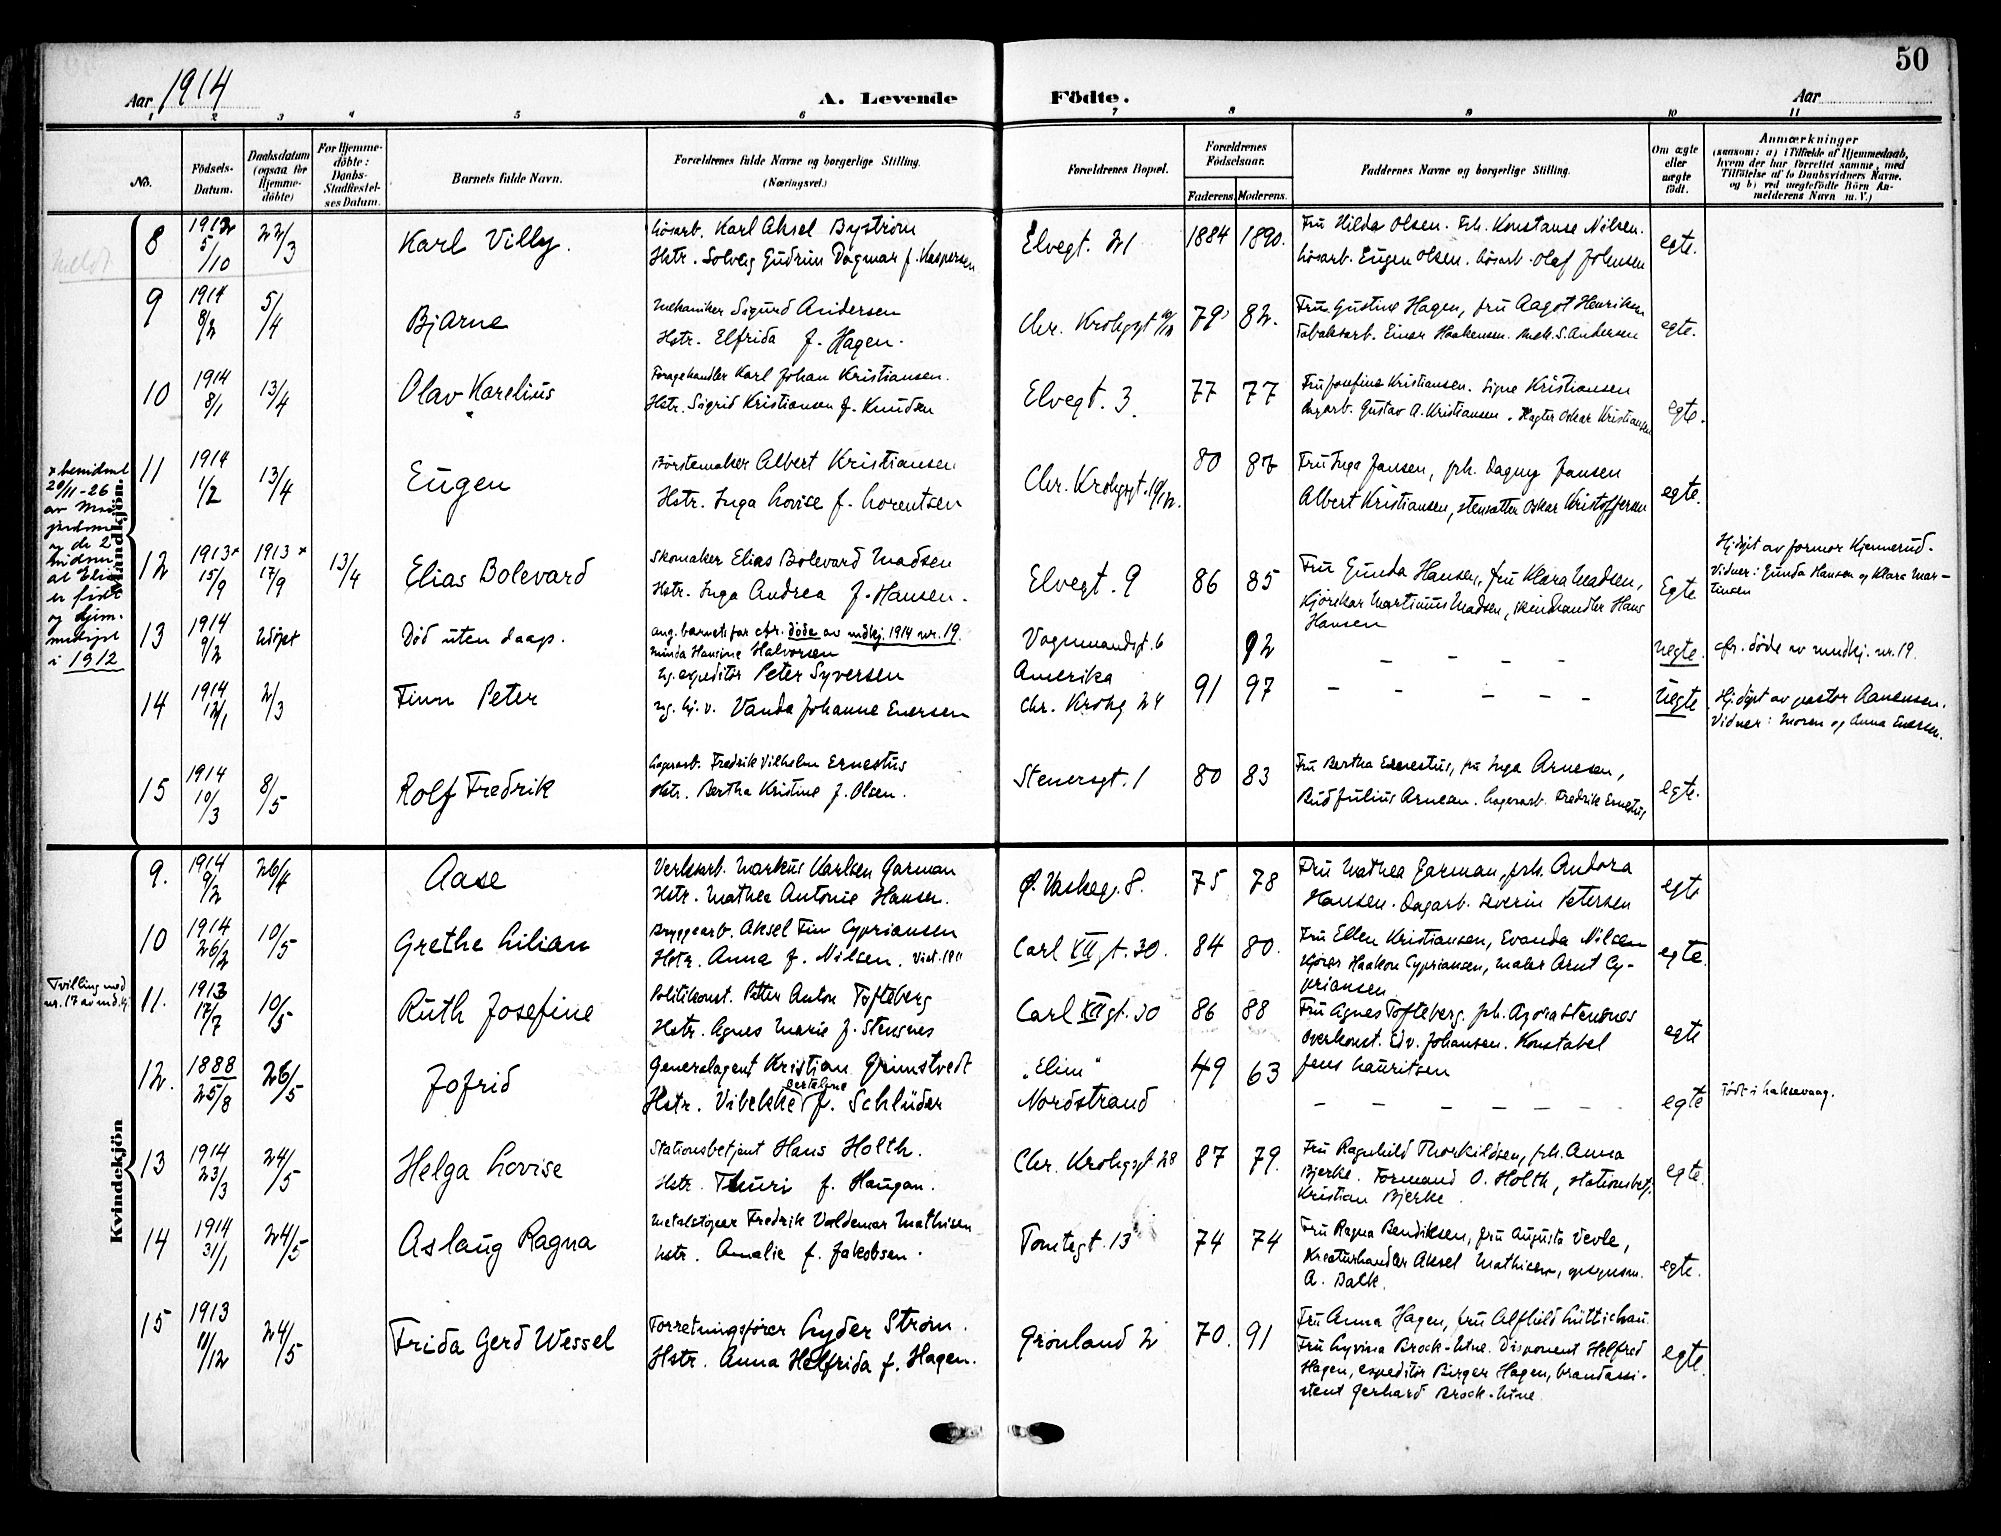 50
Aar 1914
A. Levende
Födte.
Aar
1 2 3 4 5 6 7 8 9 10 11
No.
Födsels-Datum.
Daabsdatum (ogsaa for Hjemme-döbte)
For Hjemme-döbte: Daabs-Stadfæstel-ses Datum.
Barnets fulde Navn.
Forældrenes fulde Navne og borgerlige Stilling.
(Næringsvei.)
Forældrenes Bopæl.
Forældrenes Födselsaar.
Faderens. Moderens.
Faddernes Navne og borgerlige Stilling.
Om ægte eller uægte födt.
Anmærkninger
(saasom: a) i Tilfælde af Hjemmedaab,
hvem der har forrettet samme, med
Tilföielse af to Daabsvidners Navne.
og b) ved uægtefödte Börn An-
melderens Navn m. V.)
Mandkjön.
8 1912 5/10 22/3 Karl Villy.
Løsarb. Karl Aksel Byström
Hstr. Solveig Gudrun Dagmar f. Kaspersen
Elvegt. 21 1884 1890.
Fru Hilda Olsen. Frk. Konstanse Nilsen.
Løsarb. Eugen Olsen. Løsarb. Olaf Johnsen
egte.
9 1914 8/2 5/4 Bjarne
Mekaniker Sigurd Andersen
Hstr. Elfrida f. Hagen.
Chr. Krohgsgt 79 82.
Fru Gustine Hagen, fru Aagot Henriksen
Tobaksarb. Einar Haakensen. Mek. S. Andersen
egte.
10 1914 8/1 13/4 Olav Karelius
Foragehandler Karl Johan Kristiansen.
Hstr. Sigrid Kristiansen f. Knudsen
Elvegt. 3. 77 77
Fru Josefine Kristiansen. Signe Kristiansen
Gustav A. Kristiansen. Oskar Kristiansen
egte.
11 1914 1/2 13/4 Eugen
Börstemaker Albert Kristiansen
Hstr. Inga Lovise f. Lorentsen
Chr. Krohgsgt. 80
Fru Inga Jansen, frk. Dagny Jansen
Albert Kristiansen, stensætter Oskar Kristoffersen
egte.
x
20/11-26
av
og de 2
at Elias
er født
og hjem-
medøpt
i 1912
12 1913x 15/9 1913x 17/9 13/4 Elias Bolevard
Skomaker Elias Bolevard Madsen
Hstr. Inga Andrea f. Hansen.
Elvegt. 9 86 85
Fru Gunda Hansen, fru Klara Madsen,
Kjørekar Martinius Madsen, skindhandler Hans
Hansen
Egte
Hj.døpt av jormor Kjennerud.
Vidner: Gunda Hansen og Klara Mar-
tinsen
13 1914 9/2 Udøpt Død uten daap.
ang. barnets far cfr. døde av mdkj. 1914 nr. 19.
Minda Hansine Halvorsen
Vognmandsgt. 6 92
– – – –
uegte.
cfr. døde av mndkj. nr. 19.
14 1914 12/1 2/3 Finn Peter
Ug. expeditör Peter Syversen
ug. hj. v. Vanda Johanne Enersen
Amerika
Chr. Krohg 24 91 97
– – – –
Uegte
Hj.døpt av pastor Aanensen.
Vidner: Moren og Anna Enersen.
15 1914 10/3 8/5 Rolf Fredrik
Lagerarb. Fredrik Vilhelm Ernestus
Hstr. Bertha Kristine f. Olsen.
Stenersgt. 1 80 83
Fru Bertha Ernestus, fru Inga Arnesen,
Bud Julius Arnesen. Lagerarb. Fredrik Ernestus
egte.
Kvindekjön
9. 1914 9/2 26/4 Aase
Verksarb. Markus Karlsen Garman
Hstr. Mathea Antonie Hansen.
Ø. Vaskeg. 8. 75 78
Fru Mathea Garman, frk. Andora
Hansen. Dagarb. Severin Petersen
egte
10 1914 26/2 10/5 Grethe Lilian
Bryggearb. Aksel Finn Cypriansen
Hstr. Anna f. Nilsen. Viet. 1911
Carl XII gt. 30. 84 80.
Fru Ellen Kristiansen, Evanda Nilsen
Kjører Haakon Cypriansen, maler Arnt Cy-
priansen
egte.
Tvilling med
nr. 17 av md.kj.
11. 1913 17/7 10/5 Ruth Josefine
Politikonst. Petter Anton Tofteberg
Hstr. Agnes Marie f. Stensnes
Carl XII gt. 30 86 88
Fru Agnes Tofteberg. frk. Agora Stensnes
Overkonst. Edv. Johansen. Konstabel
Jens Lauritsen
egte
12. 1888 25/8 26/5 Jofrid
Generalagent Kristian Grimstvedt
Hstr. Vibekke f. Schlüder
„Elim“
Nordstrand 49 63
– – – – – –
egte
13 1914 23/3 24/5 Helga Lovise
Stationsbetjent Hans Holth.
Hstr. Thuri f. Haugan.
Chr. Krohgsgt 28 87 79.
Fru Ragnhild Thorkildsen, frk. Anna
Bjerke. Formand O. Holth, stationsbetj.
Kristian Bjerke.
egte.
14 1914 31/1 24/5 Aslaug Ragna
Metalstøper Fredrik Valdemar Mathisen
Hstr. Amalie f. Jakobsen.
Tomtegt. 13 74 74
Fru Ragna Bendiksen, fru Augusta Vevle,
Kreaturhandler Aksel Mathisen,
A. Balk.
egte.
15 1913 11/12 24/5 Frida Gerd Wessel
Forretningsfører Lyder Strøm.
Hstr. Anna Helfrida f. Hagen.
Grønland 2 70. 91
Fru Anna Hagen, fru Alfhild Lüttichau.
Fru Lyvina Brock-Utne. Disponent Helfred
Hagen, expeditör Birger Hagen, brandassi-
stent Gerhard Brock-Utne.
egte.